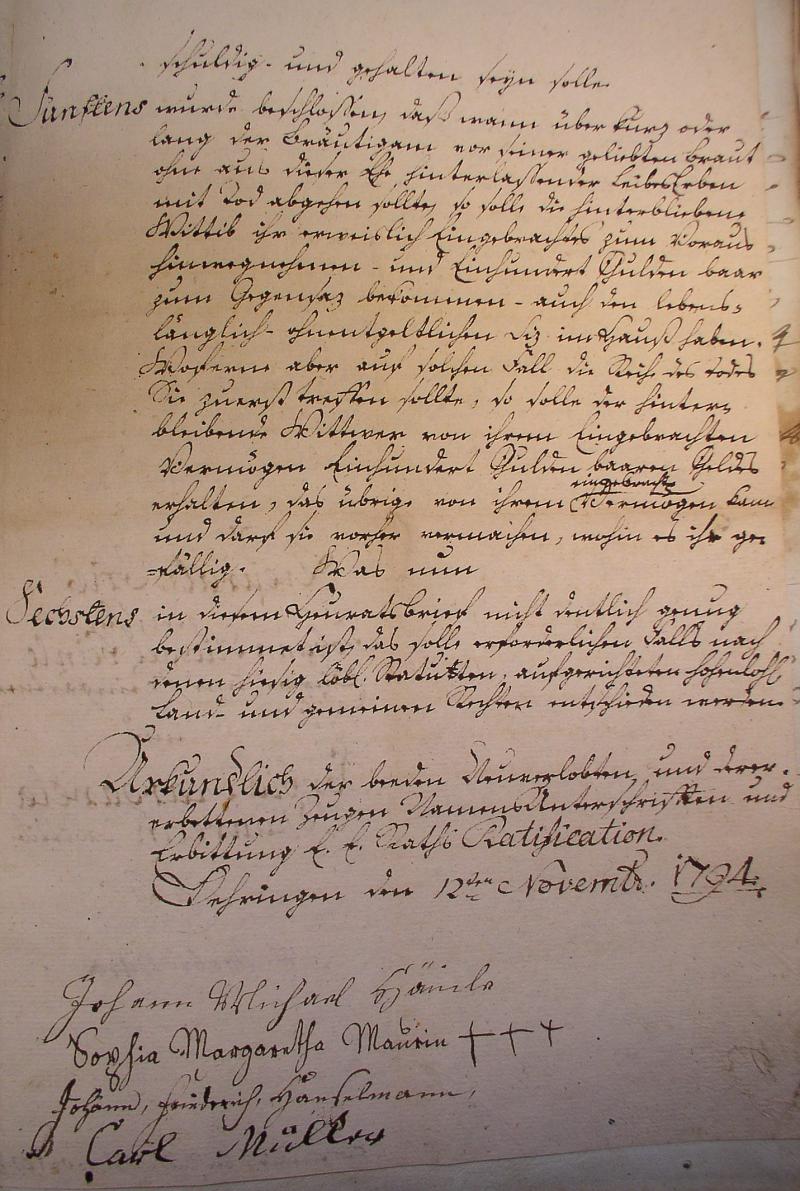 schuldig- und gehalten seyn solle.
Fünftens wurde beschlossen, daß wann über kurz oder
lang der Bräutigam vor seiner geliebten Braut
ohne aus dieser Ehe hinterlassender LeibesErben
mit Tod abgehen sollte, so solle die hinterbliebene
Wittib ihr erweislich Eingebrachtes zum Voraus
hinwegnehmen- und Einhundert Gulden baar
zum Gegensaz bekommen- auch den lebens-
länglich- ohnentgeltlichen Siz im Hauß haben.
Woferne aber auf solchen Fall die Reihe des Todes
Sie zuerst treffen sollte, so solle der hinter-
bleibende Wittwer von ihrem Eingebrachten
Vermögen Einhundert Gulden baaren Geldes
eingebrachte
erhalten, das übrige von ihrem Vermögen kann
und darf sie vorher vermachen, wohin es ihr ge-
=fällig. Was nun
Sechstens in diesem Heuratsbrief nicht deutlich genug
bestimmet ist, das solle erforderlichen Falls nach
denen hiesig löbl. Statutten, aufgerichteten hohenlohl.
Land- und gemeinen Rechten entschieden werden.
Urkundlich der beeden Neuverlobten und derer
erbettenen Zeugen NamensUnterschrifften und
Erbittung E. E. Raths Ratification.
Oehringen den 12ten Novembr. 1794.
Johann Michael
Sophia Margaretha Maurin +++
Johann, Friederich, Hanselmann,
Carl Müller